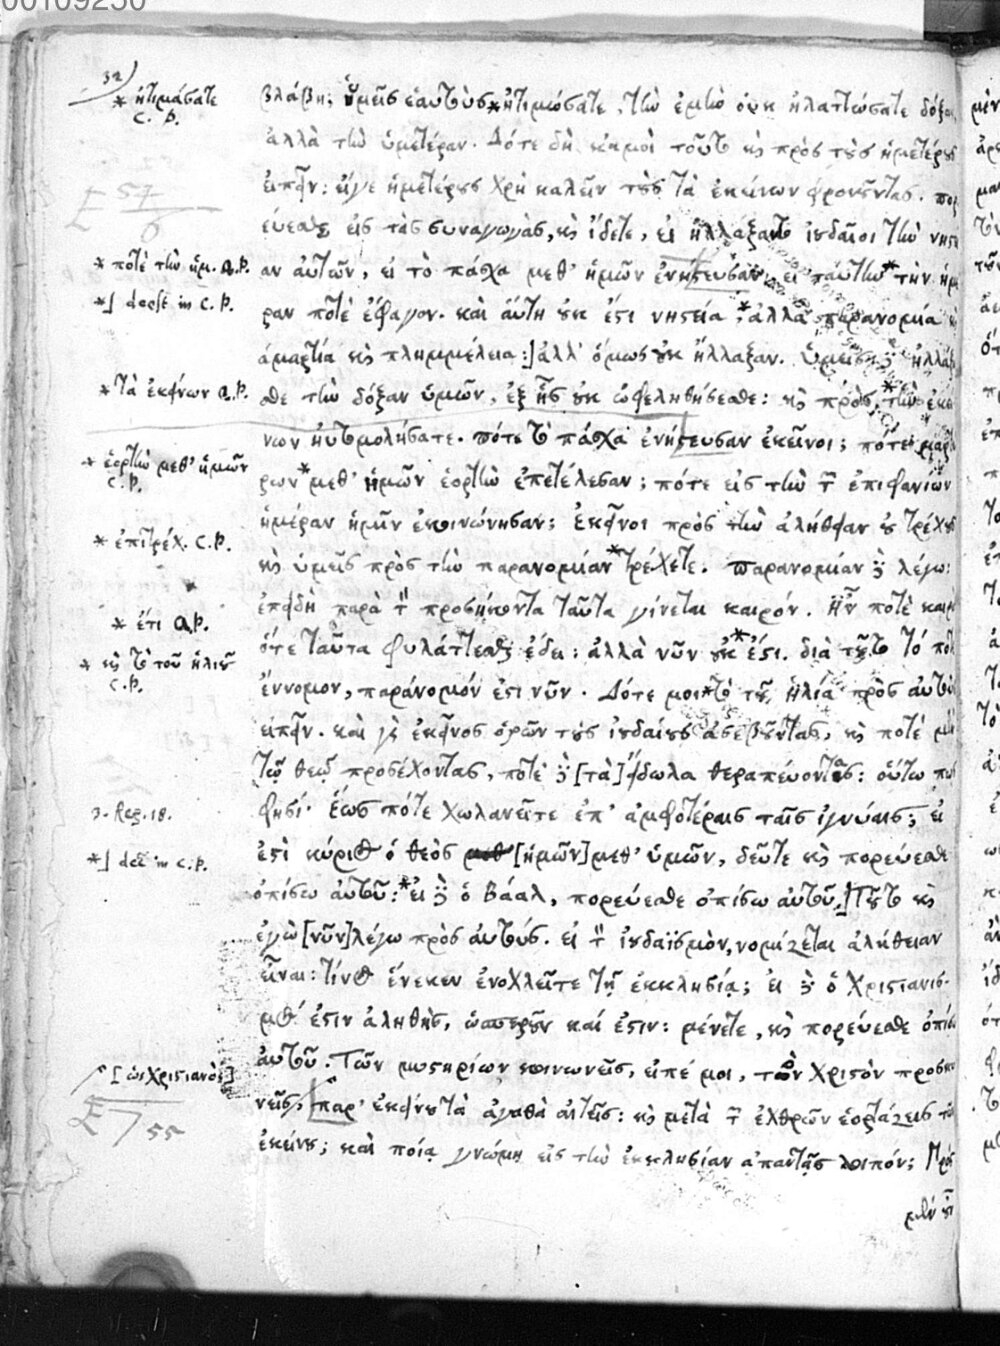 00109250
32
* ἠτιμάσατε
C. P.
βλάβη; ὑμεῖς ἑαυτοὺς * ἠτιμώσατε, τὴν ἐμὴν οὐκ ἠλαττώσατε δόξαν,
ἀλλὰ τὴν ὑμετέραν. Δότε δὴ κἀμοὶ τοῦτο κỳ πρὸς τοὺς ἡμετέρους
εἰπεῖν: εἴγε ἡμετέρους χρὴ καλεῖν τοὺς τὰ ἐκείνων φρονοῦντας. πορ
57
6
εύεσθε εἰς τὰς συναγωγὰς, κỳ ἴδετε, εἰ ἤλλαξαν τὸ ἰουδαῖοι τὴν νηστεί
* ποτὲ τὴν ἡμ. A.P.
αν αὐτῶν, εἰ τὸ πάσχα μεθ' ἡμῶν ἐνήστευσαν, εἰ ταύτην * τὴν ἡμέ
*] deest in C. P.
ραν ποτὲ ἔφαγον. καὶ αὕτη οὐκ ἔστι νηστεία, * ἀλλὰ παρανομία
ἁμαρτία κỳ πλημμέλεια:] ἀλλ' ὅμως οὐκ ἤλλαξαν. ὑμεῖς δὲ ἠλλάξα
* τὰ ἐκείνων A.P.
σθε τὴν δόξαν ὑμῶν, ἐξ ἧς οὐκ ὠφεληθήσεσθε: κỳ πρὸς * τὴν ἐκεί
νων ηὐτομολήσατε. πότε τὸ πάσχα ἐνήστευσαν ἐκεῖνοι; ποτὲ μαρτύ
* ἑορτὴν μεθ' ἡμῶν
C. P.
ρων * μεθ' ἡμῶν ἑορτὴν ἐπετέλεσαν; πότε εἰς τὴν τῶν ἐπιφανίων
ἡμέραν ἡμῖν ἐκοινώνησαν; ἐκεῖνοι πρὸς τὴν ἀλήθειαν οὐ τρέχουσι
* ἐπιτρέχ. C. P.
κỳ ὑμεῖς πρὸς τὴν παρανομίαν * τρέχετε. παρανομίαν δὲ λέγω:
ἐπειδὴ παρὰ τὸν προσήκοντα ταῦτα γίνεται καιρόν. Ἦν ποτὲ καιρὸς
* ἔτι A.P.
ὅτε ταῦτα φυλάττεσθαι ἔδει: ἀλλὰ νῦν οὐκ * ἔστι. διὰ τοῦτο τό ποτ
* κỳ τὸ τοῦ ἡλιοῦ
C. P.
ἔννομον, παράνομόν ἐστι νῦν. Δότε μοι * τὸ τοῦ Ἡλία πρὸς αὐτοὺς
εἰπεῖν. καὶ γὰρ ἐκεῖνος ὁρῶν τοὺς ἰουδαίους ἀσεβοῦντας, κỳ ποτὲ μὲν
τῷ θεῷ προσέχοντας, ποτὲ δὲ [τὰ] εἴδωλα θεραπεύοντας: οὕτω πως
3. Reg. 18.
φησί· ἕως πότε χωλανεῖτε ἐπ' ἀμφοτέραις ταῖς ἰγνύαις; εἰ
*] deest in C. P.
ἐστὶ κύριος ὁ θεὸς [ἡμῶν] μεθ' ὑμῶν, δεῦτε κỳ πορεύεσθε
ὀπίσω αὐτοῦ: * εἰ δὲ ὁ Βάαλ, πορεύεσθε ὀπίσω αὐτοῦ.] Τοῦτο κỳ
ἐγὼ [νῦν] λέγω πρὸς αὐτούς. εἰ τὸν ἰουδαϊσμὸν, νομίζεται ἀλήθειαν
εἶναι: τίνος ἕνεκεν ἐνοχλεῖτε τῇ ἐκκλησίᾳ; εἰ δὲ ὁ Χριστιανισ-
μός ἐστιν ἀληθὴς, ὥσπερ οὖν καί ἐστιν: μένετε, κỳ πορεύεσθε ὀπίσω
[ὡς Χριστιανὸς]
αὐτοῦ. Τῶν μυστηρίων κοινωνεῖς, εἰπέ μοι, τὸν Χριστὸν προσκυ
7 55
νεῖς, παρ' ἐκείνου τὰ ἀγαθὰ αἰτεῖς: κỳ μετὰ τῶν ἐχθρῶν ἑορτάζεις τῶν
ἐκείνου; καὶ ποίᾳ γνώμῃ εἰς τὴν ἐκκλησίαν ἀπαντᾷς λοιπόν; Πρὸς